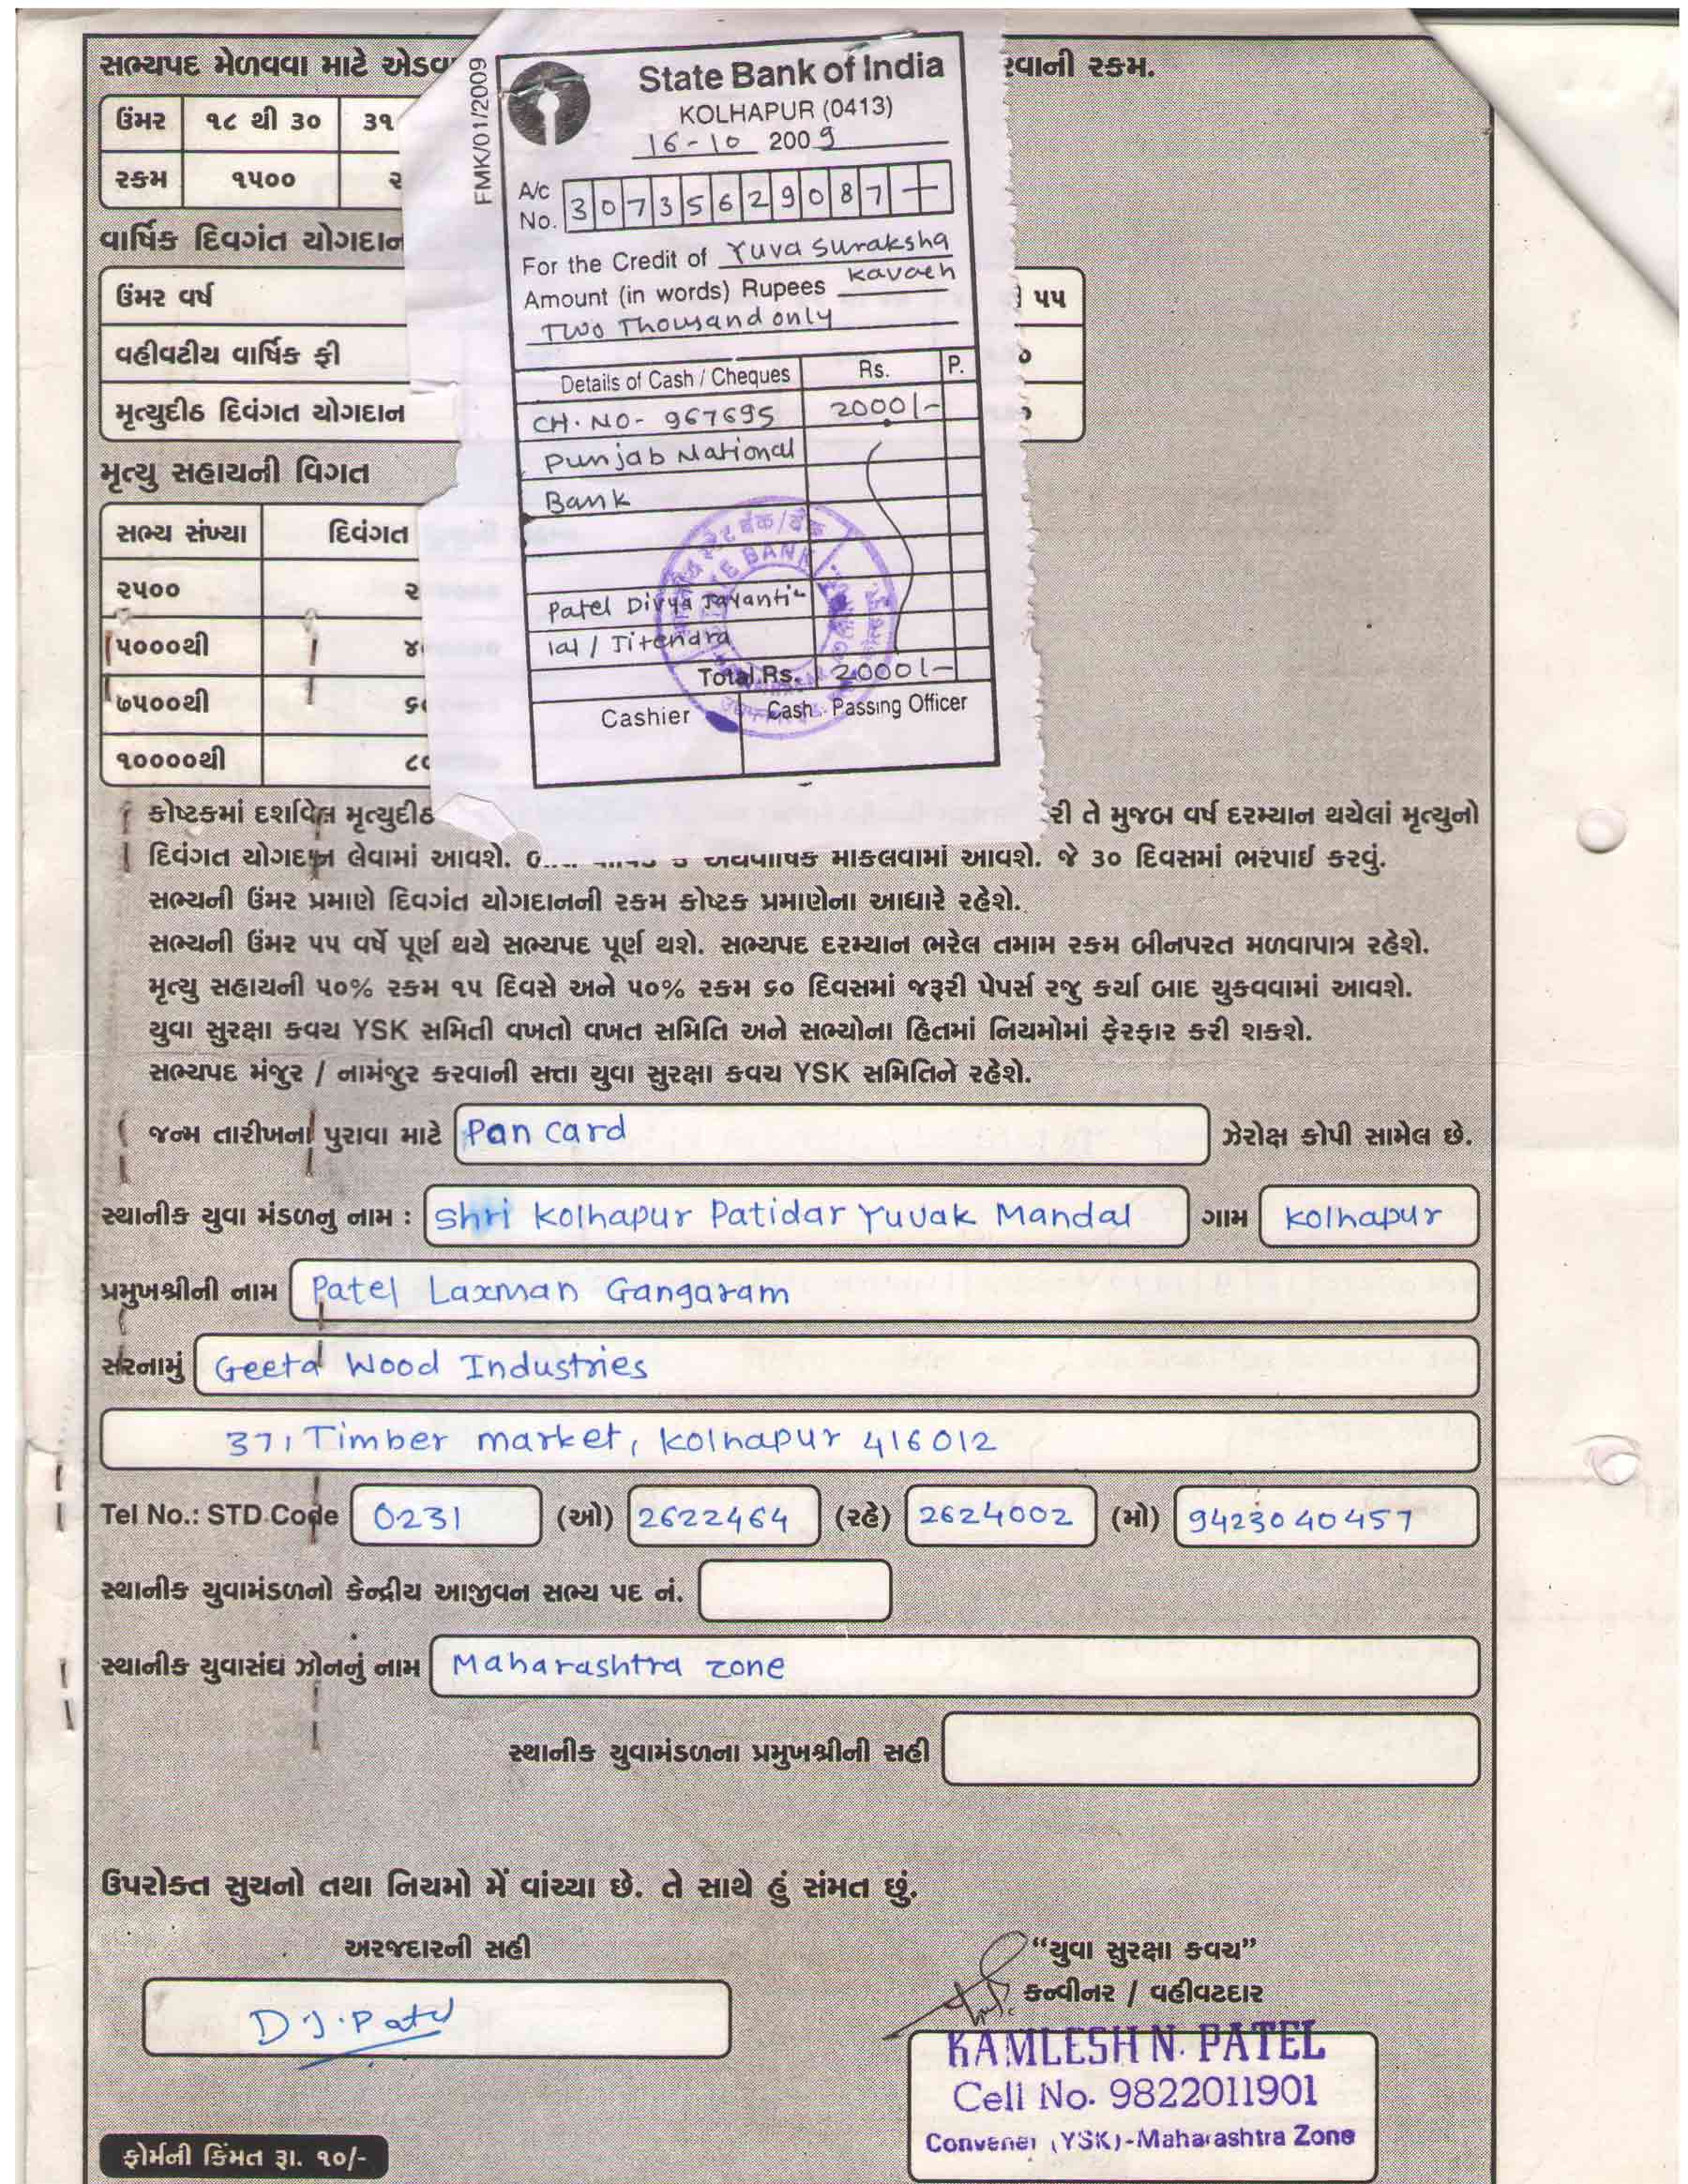 સભ્યપદ મેળવવા માટે એડવા
રવાની રકમ.
ઉંમર ૧૮ થી ૩૦ ૩૧
રકમ ૧૫૦૦ ૨
વાર્ષિક દિવગંત યોગદાન
ઉંમર વર્ષ ૫૫
વહીવટીય વાર્ષિક ફી
મૃત્યુદીઠ દિવંગત યોગદાન
મૃત્યુ સહાયની વિગત
સભ્ય સંખ્યા દિવંગત
૨૫૦૦ ૨
૫૦૦૦થી ૪
૭૫૦૦થી ૬૦
૧૦૦૦૦થી ૮૦
FMK/01/2009
State Bank of India
KOLHAPUR (0413)
16-10 2009
A/c No. 30735629087
For the Credit of Yuva Suraksha
Amount (in words) Rupees Kavach
Two Thousand only
Details of Cash / Cheques Rs. P.
CH. NO- 967695 2000/-
Punjab National
Bank
Patel Divya Jayanti-
lal / Jitendra
Total Rs. 2000/-
Cashier Cash Passing Officer
કોષ્ટકમાં દર્શાવેલ મૃત્યુદીઠ રી તે મુજબ વર્ષ દરમ્યાન થયેલાં મૃત્યુનો
દિવંગત યોગદાન લેવામાં આવશે. મોકલવામાં આવશે. જે ૩૦ દિવસમાં ભરપાઈ કરવું.
સભ્યની ઉંમર પ્રમાણે દિવગંત યોગદાનની રકમ કોષ્ટક પ્રમાણેના આધારે રહેશે.
સભ્યની ઉંમર ૫૫ વર્ષે પૂર્ણ થયે સભ્યપદ પૂર્ણ થશે. સભ્યપદ દરમ્યાન ભરેલ તમામ રકમ બીનપરત મળવાપાત્ર રહેશે.
મૃત્યુ સહાયની ૫૦% રકમ ૧૫ દિવસે અને ૫૦% રકમ ૬૦ દિવસમાં જરૂરી પેપર્સ રજુ કર્યા બાદ ચુકવવામાં આવશે.
યુવા સુરક્ષા કવચ YSK સમિતી વખતો વખત સમિતિ અને સભ્યોના હિતમાં નિયમોમાં ફેરફાર કરી શકશે.
સભ્યપદ મંજુર / નામંજુર કરવાની સત્તા યુવા સુરક્ષા કવચ YSK સમિતિને રહેશે.
જન્મ તારીખના પુરાવા માટે Pan card ઝેરોક્ષ કોપી સામેલ છે.
સ્થાનીક યુવા મંડળનુ નામ : Shri Kolhapur Patidar Yuvak Mandal ગામ Kolhapur
પ્રમુખશ્રીની નામ Patel Laxman Gangaram
સરનામું Geeta Wood Industries
37, Timber market, Kolhapur 416012
Tel No.: STD Code 0231 (ઓ) 2622464 (રહે) 2624002 (મો) 9423040457
સ્થાનીક યુવામંડળનો કેન્દ્રીય આજીવન સભ્ય પદ નં.
સ્થાનીક યુવાસંઘ ઝોનનું નામ Maharashtra zone
સ્થાનીક યુવામંડળના પ્રમુખશ્રીની સહી
ઉપરોક્ત સુચનો તથા નિયમો મેં વાંચ્યા છે. તે સાથે હું સંમત છું.
અરજદારની સહી
D J. Patel
“યુવા સુરક્ષા કવચ”
કન્વીનર / વહીવટદાર
KAMLESH N. PATEL
Cell No. 9822011901
Convener (YSK)-Maharashtra Zone
ફોર્મની કિંમત રૂા. ૧૦/-